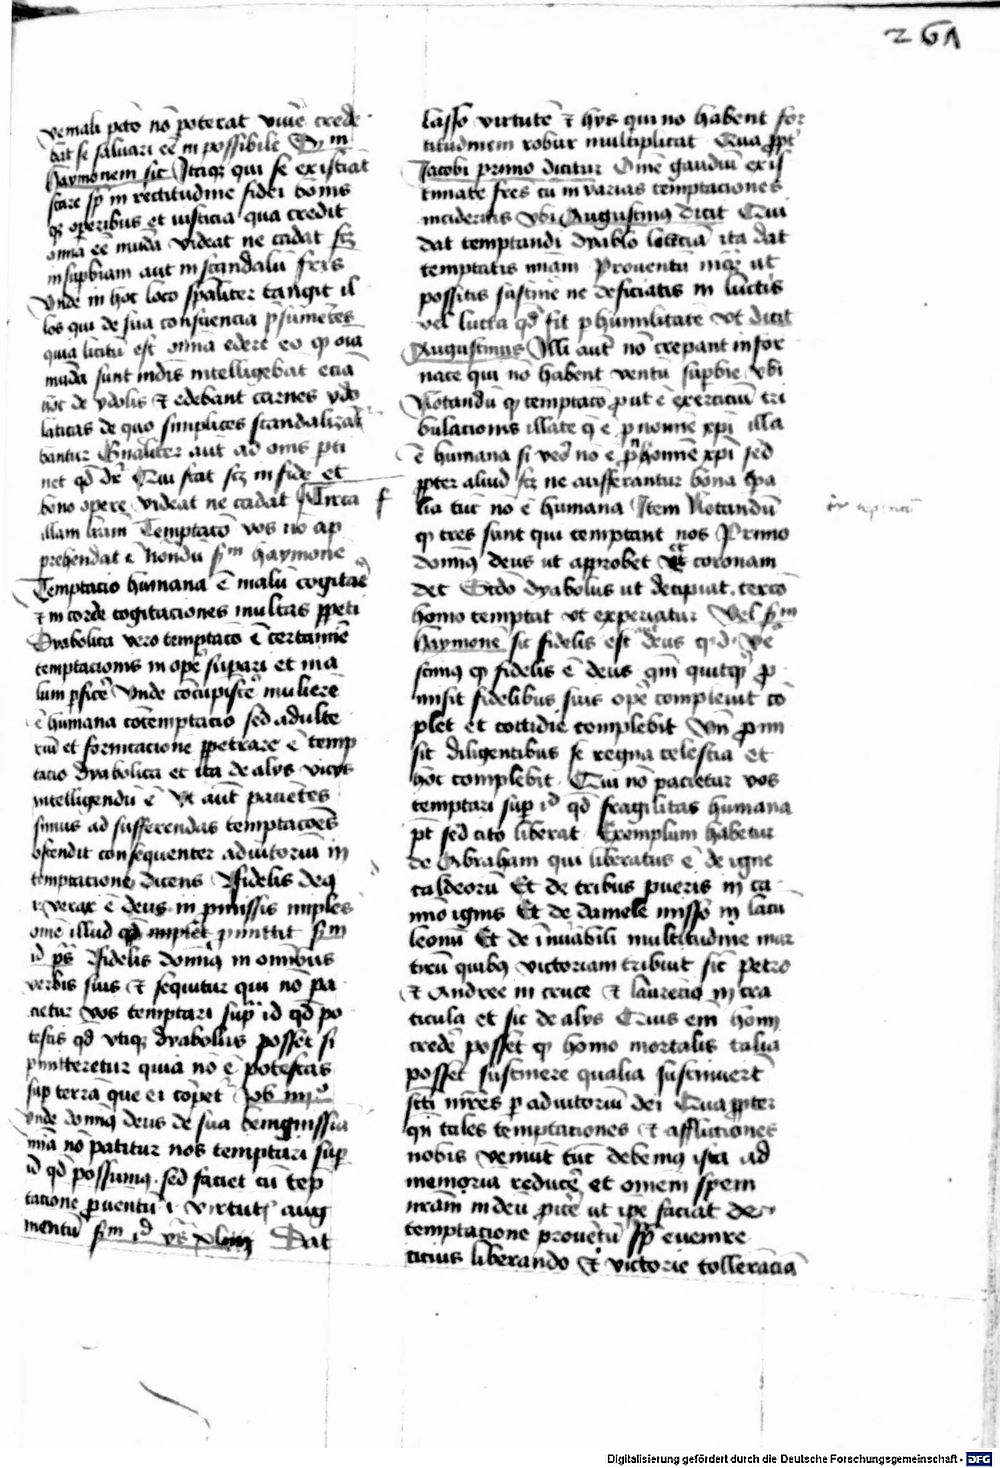 261
veniali pctō nō poterat viuē crede
bat se saluari eē inpossibile Sm
haymonem sic Itaq; qui se existiāt
stare sp̄ in rectitudine fidei bonis
q; operibus et iusticia qua credit
omīa eē munda videat ne cadat scz
in supbiam aut in scandalū frīs
Vnde in hoc loco spāliter tangit il
los qui de sua consciencia psumētes
quia licitū est omīa edere eo qp oīa
munda sunt mūdis intelligebāt eciā
hōc de ydolis et edebant carnes ydo
laticas de quo simplices scandalizā
bantur Gnāliter aūt ad oms pti
net qd dr̄ Qui stat scz in fide et
bono opere videat ne cadat Circa
illam līam Temptacō vos nō ap
prehendat ē Notandū sm haymonē
Temptacio humana ē malū cogitāe
et in corde cogitaciones multas ppeti
Dyabolica vero temptacō ē certamīe
temptacionis in opē supari et ma
lum pficē Vnde cōcupiscē mulierē
ē humana cōtemptacio sed adulte
riū et fornicacione ppetrare ē temp
tacio dyabolica et ita de alijs vicijs
intelligendū ē Vt aūt pacietes
simus ad sufferendas temptacōes
ostendit consequenter adiutoriū in
temptacione dicens Fidelis deq
i. verax ē deus in pmissis implēs
omē illud qd implet pmittit sm
id ps̄ Fidelis domīq in omībus
verbis suis et sequitur qui nō pa
cietur vos temptari sup id qd po
testis qd vtiq; dyabolus posset si
pmitteretur quia nō ē potestas
sup terrā que ei cōpet Job iiijo
Vnde domīq deus de sua benignissīa
mīa nō patitur nos temptari sup
id qd possumq sed faciet cū tep
tacione puentū i virtutis aug
mentū sm id ys xliiij Dat
lasso virtutē et hijs qui nō habent for
titudinem robur multiplicat Qua ppt
Jacobi primo dicitur Omē gaudiū exis
timate frēs cū in varias temptaciones
incideritis vbi Augustinq dicit Qui
dat temptandi dyabolo licēciā ita dat
temptatis mīam Prouentū inq; ut
possitis sustinē ne deficiatis in luctis
vel lucta qd fit p humilitatē vt dicit
Augustinus Illi aūt nō crepant in for
nace qui nō habent ventū supbie vbi
Notandū qp temptacō put ē exerciciū tri
bulacionis illate q ē p nomīe xpī illa
ē humana si vero nō ē p nomīe xpī sed
ppter aliud scz ne aufferantur bona tpa
lia tūc nō ē humana Item Notandū
qp tres sunt qui temptant nos Primo
domīq deus ut approbet et coronam
det Scdo dyabolus ut decipiat tercō
homo temptat vt experiatur Vel sm
haymonē sic fidelis est deus q d ve
scimq qp fidelis ē deus qm quitqd p
misit fidelibus suis opē compleuit cō
plet et cottidie complebit Vn pmi
sit diligentibus se regna celestia et
hōc complebit Qui nō pacietur vos
temptari sup id qd fragilitas humana
pt sed cito liberat Exemplum habetur
de Abraham qui liberatus ē de igne
caldeorū Et de tribus pueris in ca
mīo ignis Et de daniele misso in lacū
leonū Et de inuābili multitudine mar
tirū quibq victoriam tribuit sic petro
et Andree in cruce et laurecio in cra
ticula et sic de alijs Quis em homī
crede posset qp homo mortalis talia
posset sustinere qualia sustinuerūt
scti mrēs p adiutoriū dei Qua ppter
qn tales temptaciones et afflictiones
nobis veniūt tūc debemq ista ad
memoria reducē et omem spem
nrām in deū picē ut ipe faciat de
temptacione prouētū sp euenire
ticius liberando et victorie tolleraciā
Digitalisierung gefördert durch die Deutsche Forschungsgemeinschaft - DFG